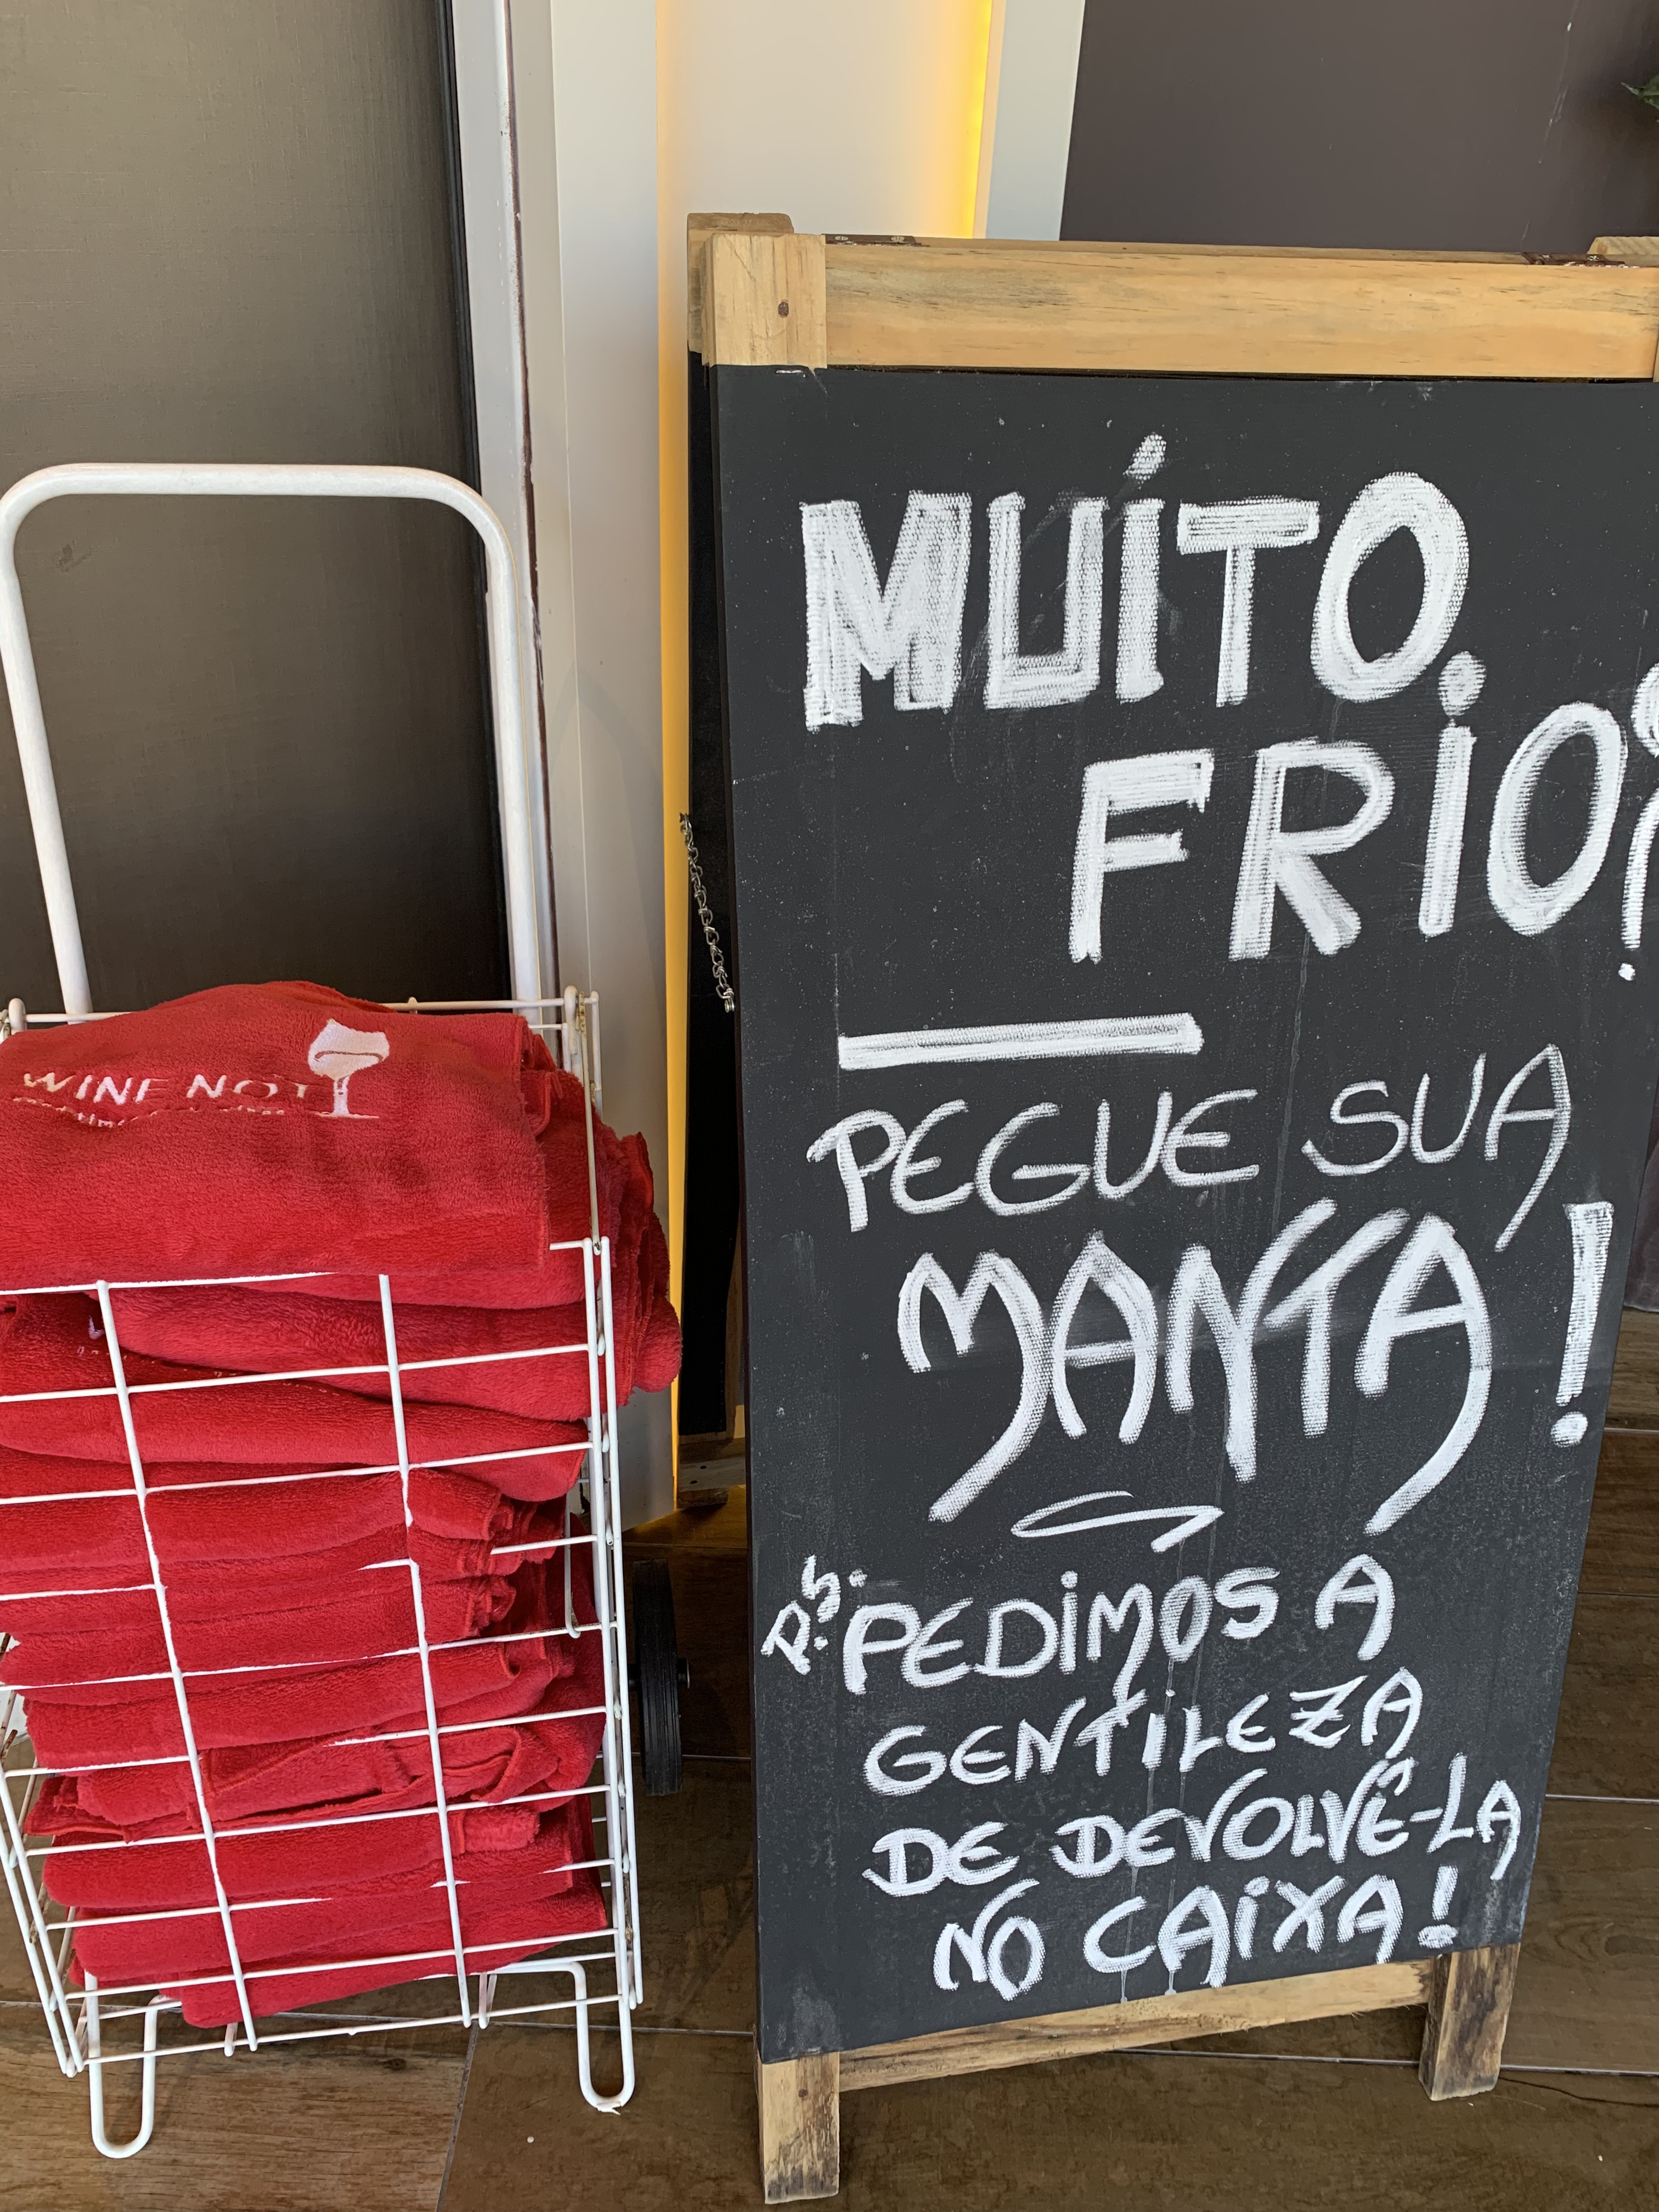 WINE NOT
MUÍTO
FRIO?
PEGUE SUA
MANTA!
P.S. PEDIMOS A
GENTILEZA
DE DEVOLVÊ-LA
NO CAIXA!